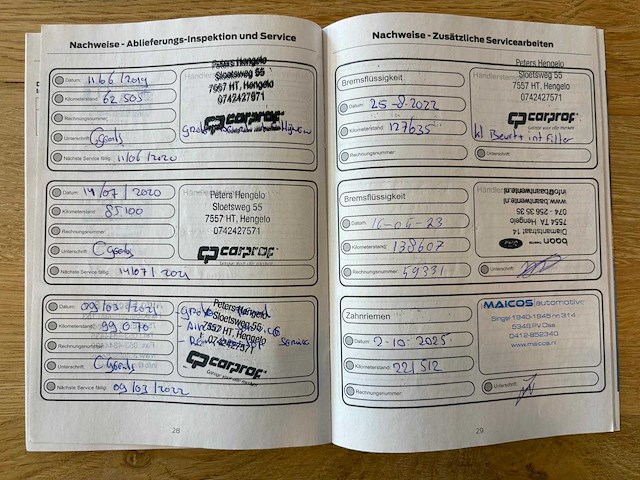 Nachweise - Ablieferungs-Inspektion und Service
Datum: 11/06/2019
Kilometerstand: 62 505
Rechnungsnummer:
Unterschrift:
Nächste Service fällig: 11/06/2020
Peters Hengelo
Sloetsweg 55
7557 HT, Hengelo
0742427971
carprof
Datum: 14/07/2020
Kilometerstand: 85100
Rechnungsnummer:
Unterschrift:
Nächste Service fällig: 14/07/2021
Peters Hengelo
Sloetsweg 55
7557 HT, Hengelo
0742427971
carprof
Garage voor alle merken
Datum: 09/03/2021
Kilometerstand: 99 070
Rechnungsnummer:
Unterschrift:
Nächste Service fällig: 09/03/2022
Peters Hengelo
Sloetsweg 55
7557 HT, Hengelo
0742427971
carprof
Garage voor alle merken
28
Nachweise - Zusätzliche Servicearbeiten
Bremsflüssigkeit
Datum: 25-8-2022
Kilometerstand: 127635
Rechnungsnummer:
Peters Hengelo
Sloetsweg 55
7557 HT, Hengelo
0742427971
carprof
Garage voor alle merken
kl Beurt + int Filter
Unterschrift:
Bremsflüssigkeit
Datum: 16-05-23
Kilometerstand: 138607
Rechnungsnummer: 59331
baan
Diamantstraat 14
7554 TA Hengelo
074 - 256 35 35
www.baantwente.nl
info@baantwente.nl
Unterschrift:
Zahnriemen
Datum: 2-10-2025
Kilometerstand: 221512
Rechnungsnummer:
MAICOS automotive
Singel 1940-1945 nr. 314
5348 PV Oss
0412-852340
www.maicos.nl
Unterschrift:
29